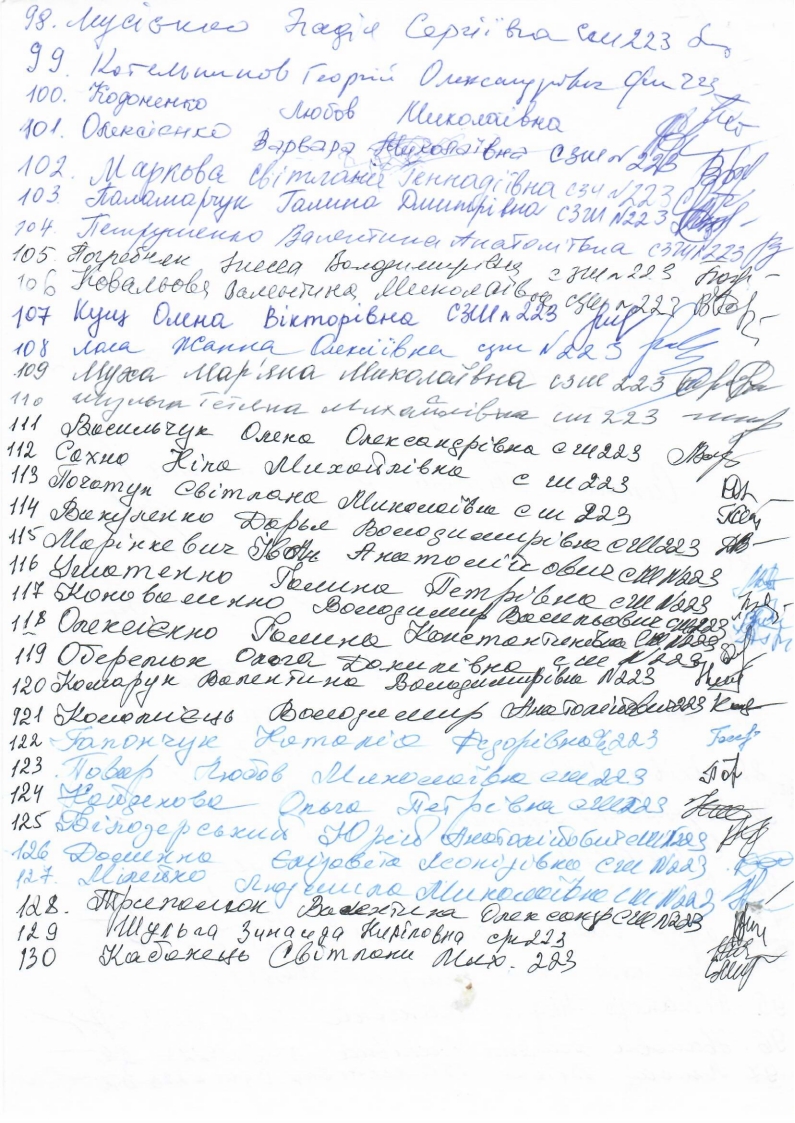 98. Мусієнко Надія Сергіївна сш 223
99. Котельников Георгій Олександрович сш 223
100. Кодоненко Любов Миколаївна
101. Олексієнко Варвара Миколаївна СЗШ № 223
102. Маркова Світлана Геннадіївна сзш №223
103. Паламарчук Галина Дмитрівна СЗШ №223
104. Петрушенко Валентина Анатоліївна СЗШ №223
105. Погребняк Інесса Володимирівна СЗШ №223
106 Ковальова Валентина Миколаївна СЗШ №223
107 Кущ Олена Вікторівна СЗШ №223
108 Лоса Жанна Олексіївна сзш №223
109 Муха Мар'яна Миколаївна СЗШ 223
110 Тетяна Михайлівна сш 223
111 Васильчук Олена Олександрівна с ш 223
112 Сахно Ніна Михайлівна с ш 223
113 Почотук Світлана Миколаївна с ш 223
114 Вакуленко Дарья Володимирівна с ш 223
115 Марінкевич Іван Анатолійович с Ш №223
116 Уматенко Галина Петрівна с ш №223
117 Коноваленко Володимир Васильович с ш 223
118 Олексієнко Галина Константинівна с ш №223
119 Оберемок Ольга Данилівна с ш №223
120 Комарук Валентина Володимирівна №223
121 Коломієць Володимир Анатолійович 223
122 Гапончук Наталія Федорівна 223
123 Повар Любов Миколаївна с ш 223
124 Кайданова Ольга Петрівна с ш 223
125 Білодерський Юрій Анатолійович с ш №223
126 Доценко Єлізавета Леонідівна с ш №223
127. Мілейко Людмила Миколаївна с ш №223
128. Триполюк Валентина Олександр с ш №223
129 Шульга Зинаида Кириловна сш 223
130 Кабанець Світлани Мих. 223